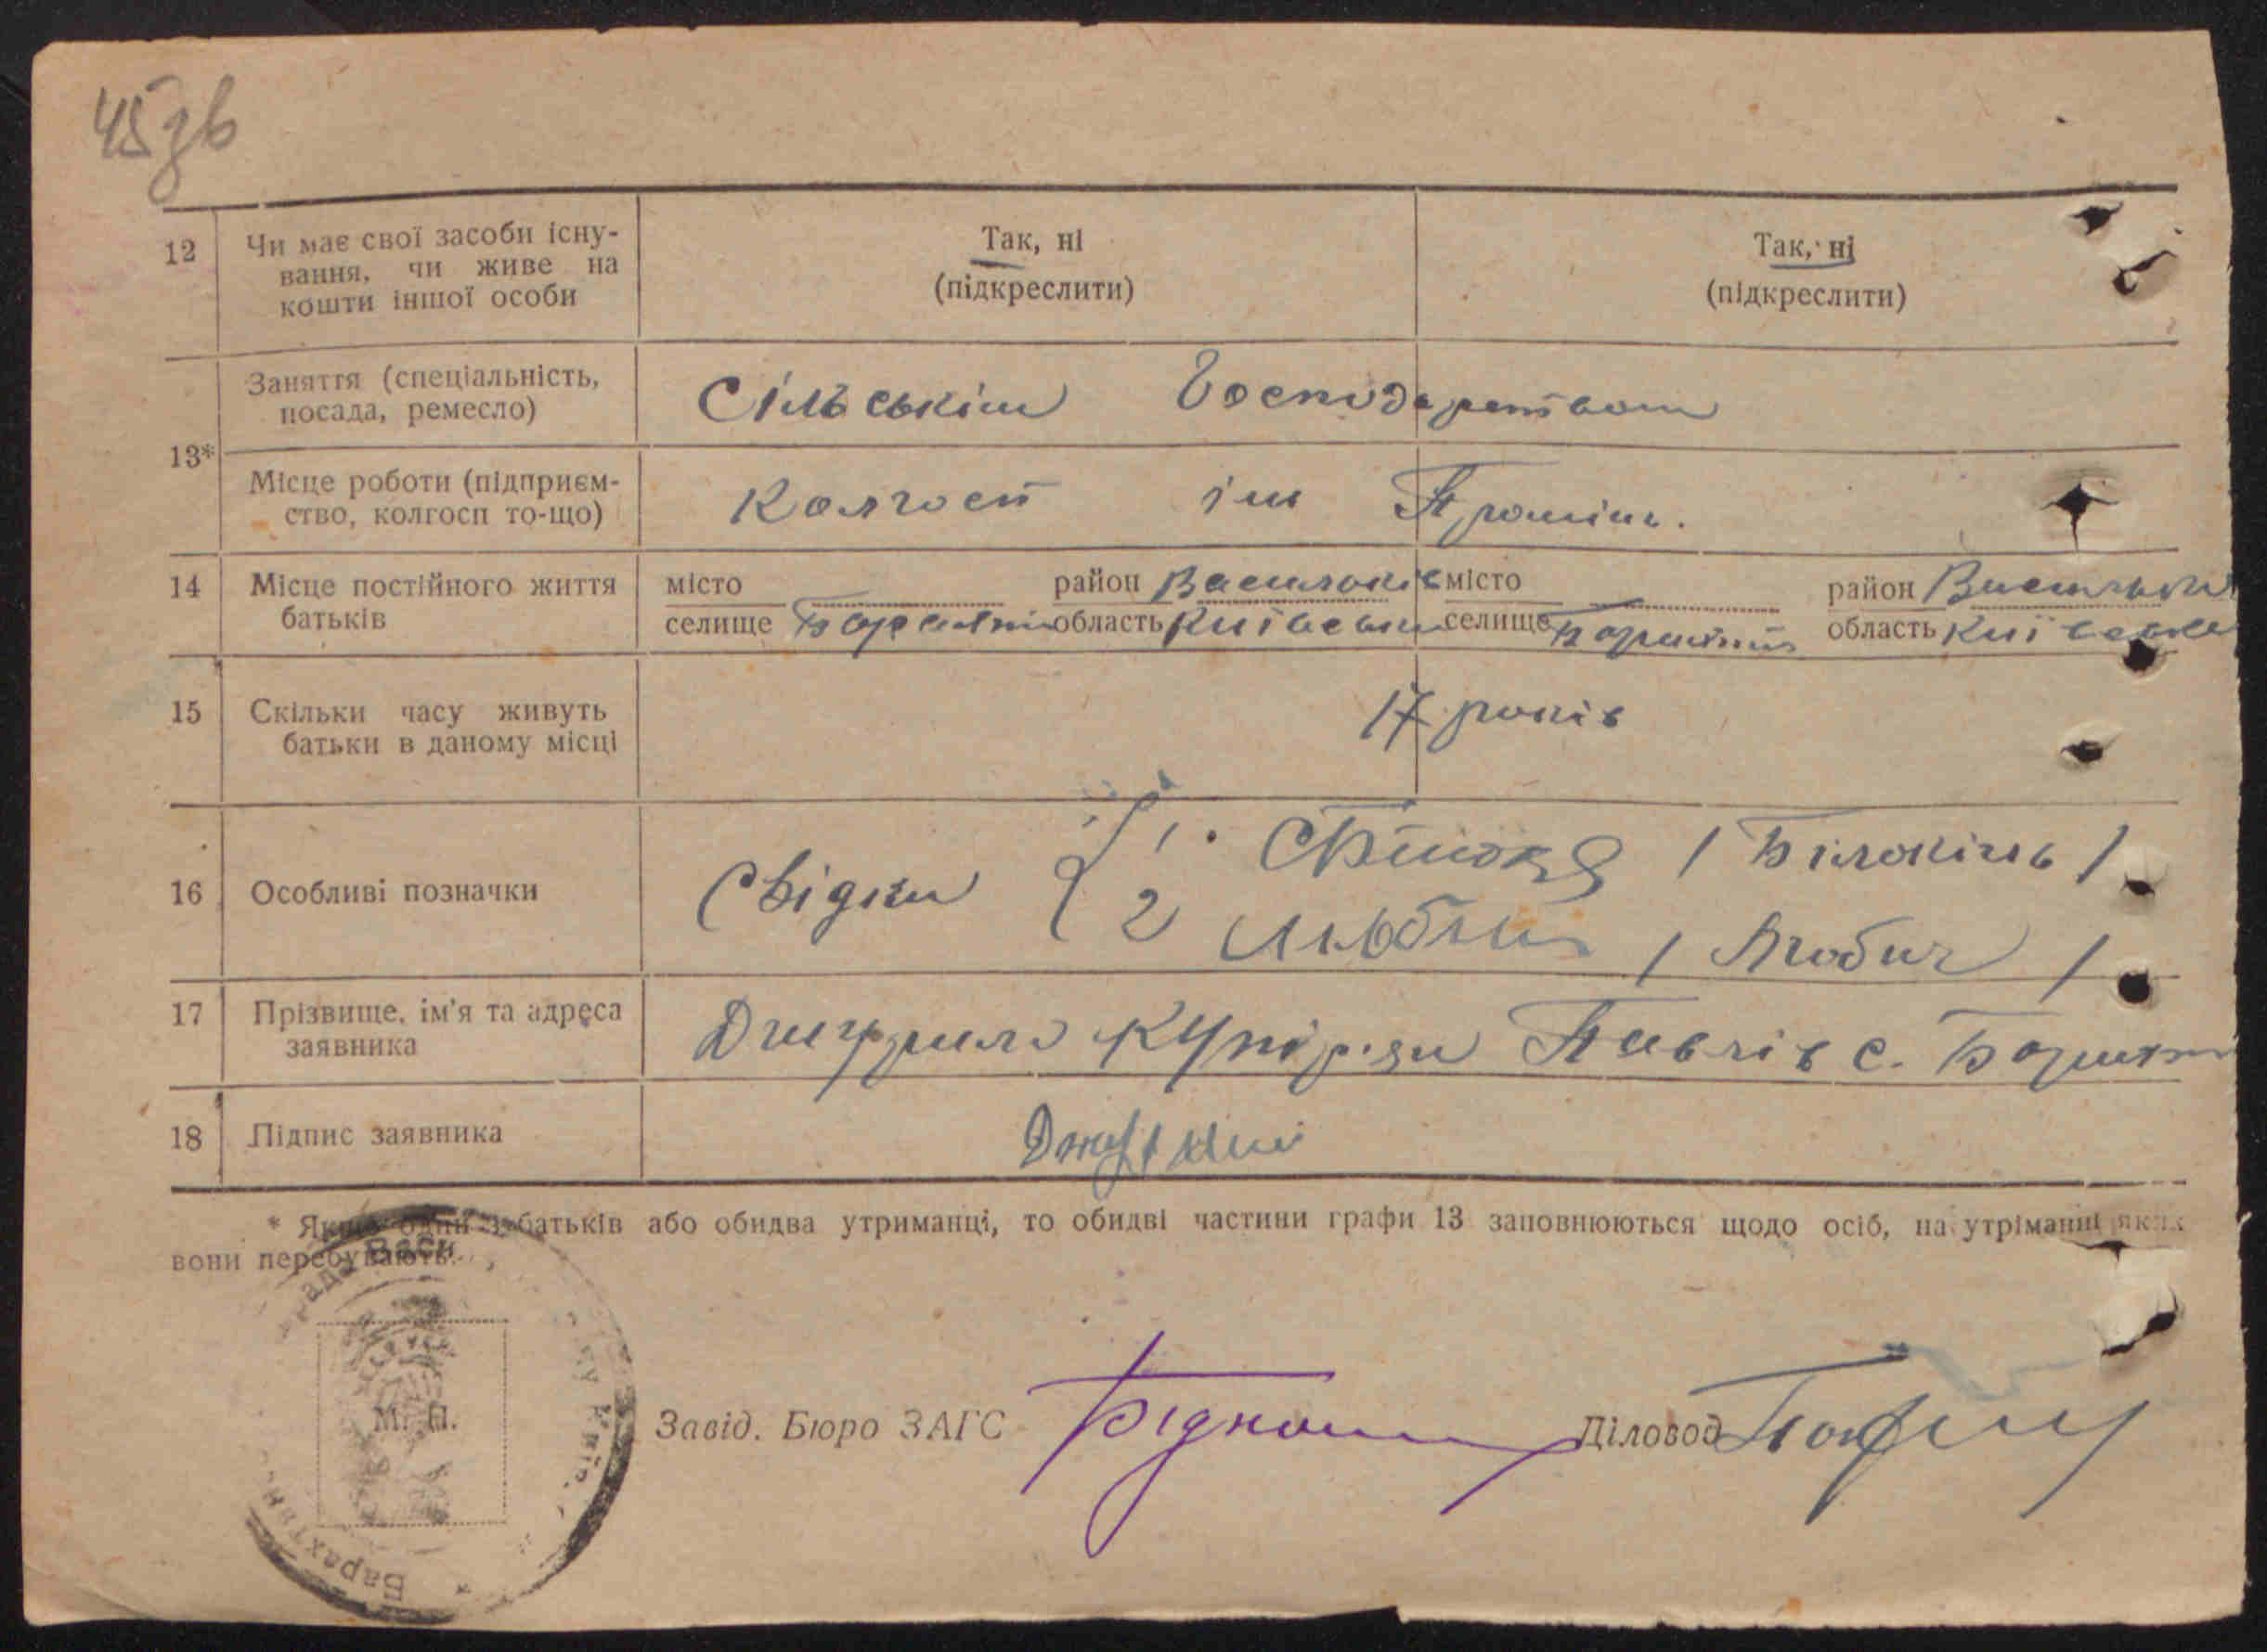 45зв
12 Чи має свої засоби існу-
вання, чи живе на
кошти іншої особи
Так, ні
(підкреслити)
Так, ні
(підкреслити)
13*
Заняття (спеціальність,
посада, ремесло)
Сільським Господарством
Місце роботи (підприєм-
ство, колгосп то-що)
Колгосп ім Промінь.
14 Місце постійного життя
батьків
місто район Васильків
селище область Київська
місто район Васильків
селище область Київська
15 Скільки часу живуть
батьки в даному місці
17 років
16 Особливі позначки
Свідки
1. / Білокінь /
2 / Любич /
17 Прізвище, ім'я та адреса
заявника
Павлів с.
18 Підпис заявника
* Якщо один з батьків або обидва утриманці, то обидві частини графи 13 заповнюються щодо осіб, на утріманні яких
вони перебувають.
М. П.
Завід. Бюро ЗАГС
Діловод